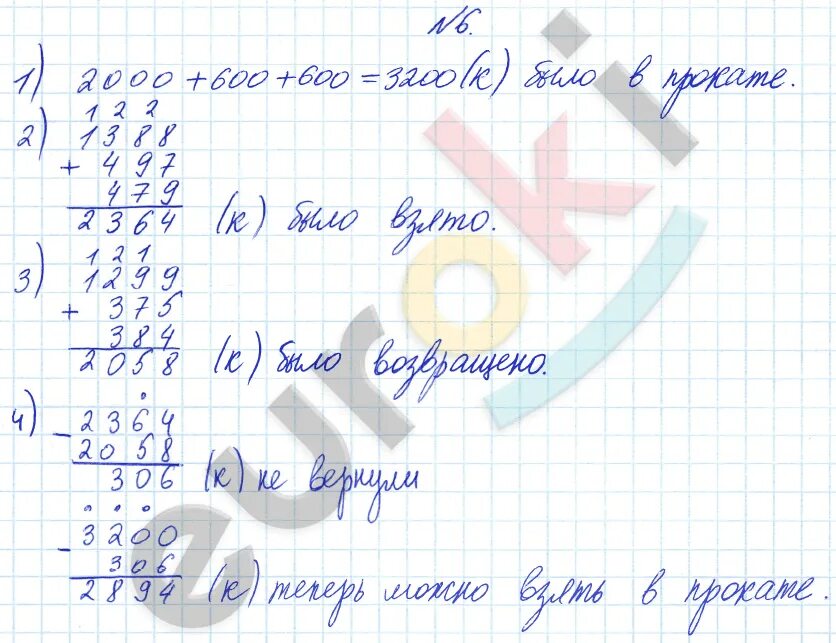 №6.
1) 2000 + 600 + 600 = 3200 (к) было в прокате.
1 2 2
2) 1388
+ 497
479
2364 (к) было взято.
1 2 1
3) 1299
+ 375
384
2058 (к) было возвращено.
4) - 2364
2058
306 (к) не вернули
- 3200
306
2894 (к) теперь можно взять в прокате.
euroki